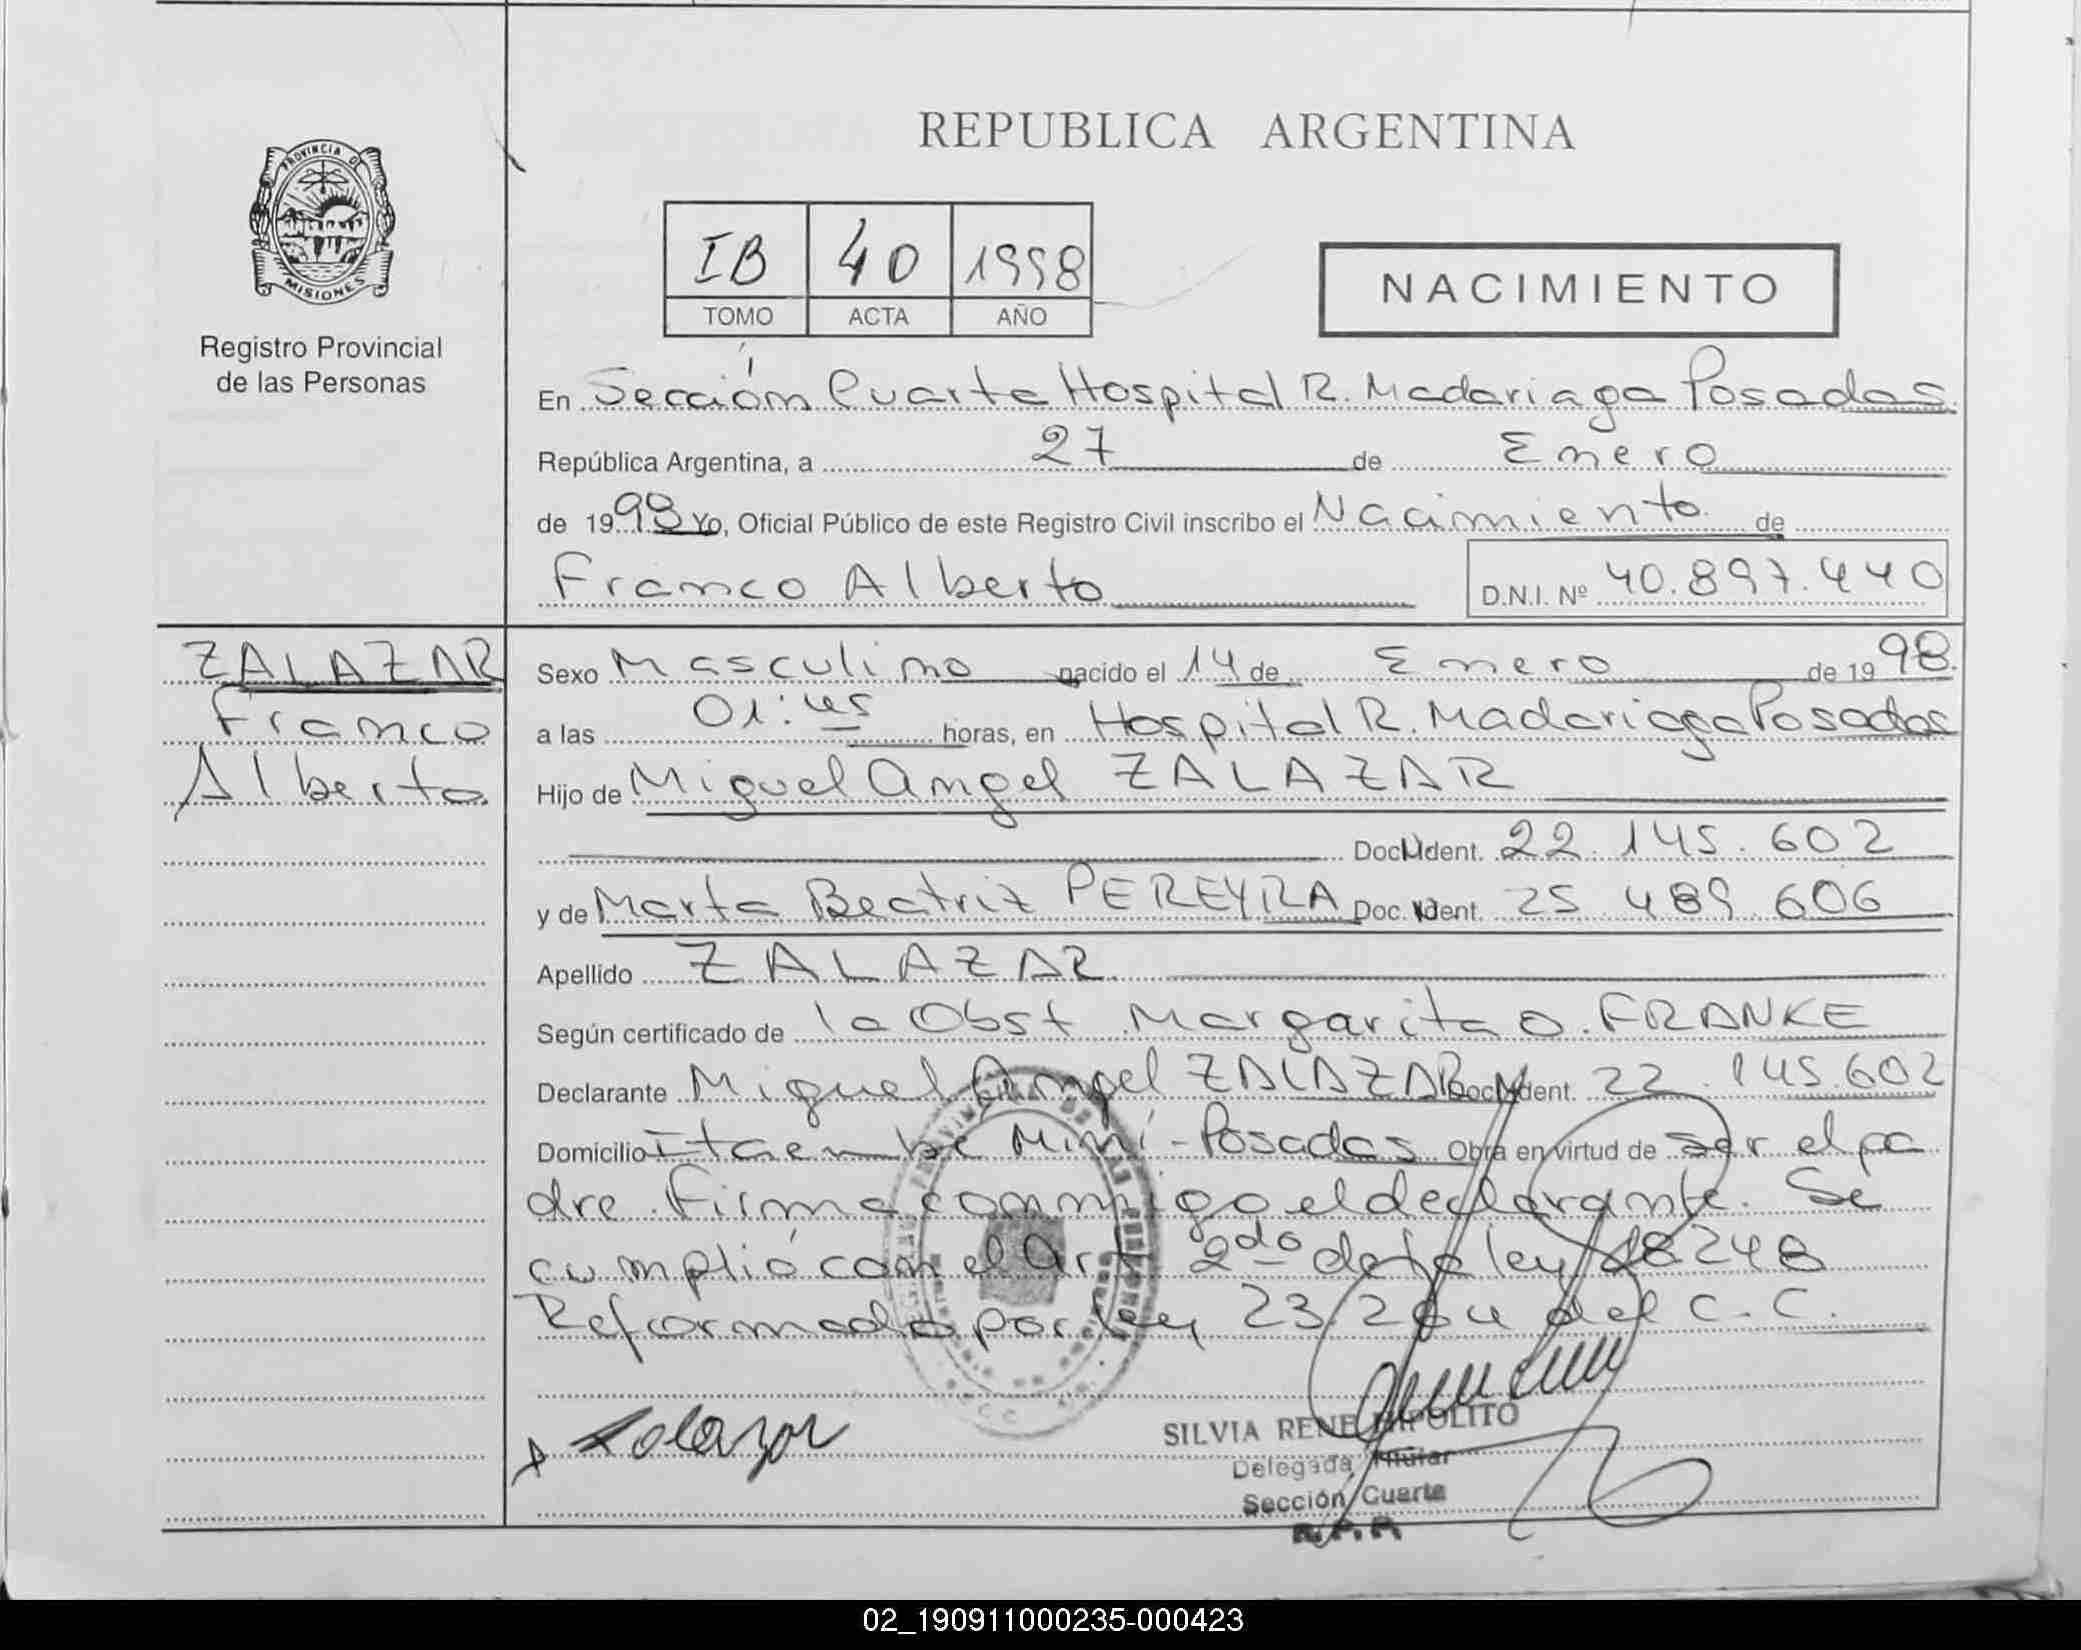 REPUBLICA ARGENTINA
PROVINCIA DE
MISIONES
Registro Provincial
de las Personas
IB 40 1998
TOMO ACTA AÑO
NACIMIENTO
En Sección Cuarta Hospital R. Madariaga Posadas
República Argentina, a 27 de Enero
de 1998 Yo, Oficial Público de este Registro Civil inscribo el Nacimiento de
Franco Alberto D.N.I. Nº 40.897.440
ZALAZAR
Franco
Alberto
Sexo Masculino nacido el 14 de Enero de 1998
a las 01:45 horas, en Hospital R. Madariaga Posadas
Hijo de Miguel Angel ZALAZAR
Doc. Ident. 22.145.602
y de Marta Beatriz PEREYRA Doc. Ident. 25 489 606
Apellido ZALAZAR
Según certificado de la Obst Margarita O. FRANKE
Declarante Miguel Angel ZALAZAR Doc. Ident. 22.145.602
Domicilio Itaembe Miní - Posadas Obra en virtud de ser el pa
dre. Firma conmigo el declarante. Se
cumplió con el Art 2do de la ley 18248
Reformada por ley 23.264 del C.C.
Zalazar
SILVIA RENE HIPOLITO
Delegada Titular
Sección Cuarta
R.P.P.
02_190911000235-000423